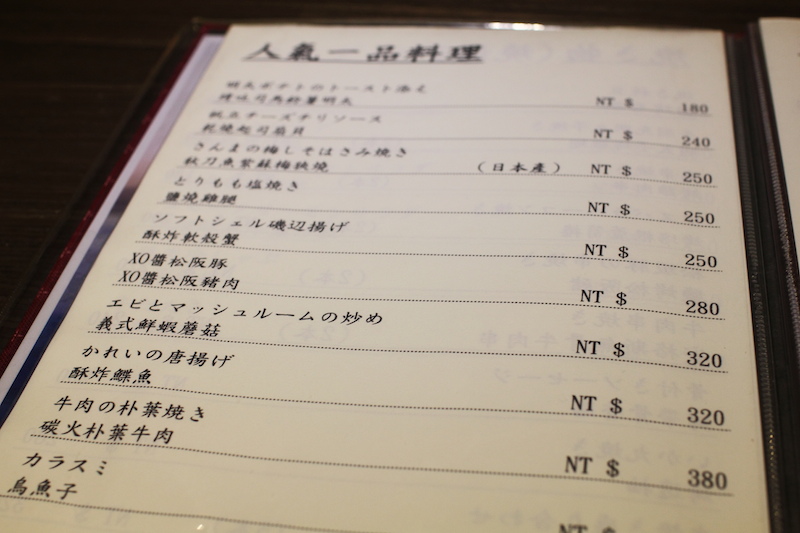 人氣一品料理
明太ポテトのトースト添え
烤吐司馬鈴薯明太 NT $ 180
帆立チーズチリソース
乾燒起司扇貝 NT $ 240
さんまの梅しそはさみ焼き
秋刀魚紫蘇梅挾燒 (日本産) NT $ 250
とりもも塩焼き
鹽燒雞腿 NT $ 250
ソフトシェル磯辺揚げ
酥炸軟殼蟹 NT $ 250
XO醬松阪豚
XO醬松阪豬肉 NT $ 280
エビとマッシュルームの炒め
義式鮮蝦蘑菇 NT $ 320
かれいの唐揚げ
酥炸鰈魚 NT $ 320
牛肉の朴葉焼き
碳火朴葉牛肉 NT $ 380
カラスミ
烏魚子 NT $